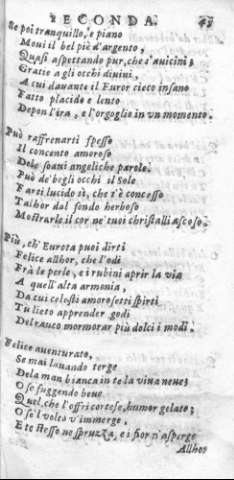 SECONDA. 45
Se poi tranquillo, e piano
Moui il bel piè d'argento,
Quasi aspettando pur, che s'auicini;
Gratie a gli occhi diuini,
A cui dauante il Furor cieco insano
Fatto placido e lento
Depon l'ira, e l'orgoglio in vn momento.
Può raffrenarti spesso
Il concento amoroso
Dele soaui angeliche parole.
Può de' begli occhi il Sole
Farti lucido sì, che t'è concesso
Talhor dal fondo herboso
Mostrarle il cor ne' tuoi christalli ascoso.
Più, ch' Eurota puoi dirti
Felice allhor, che l'odi
Frà le perle, e i rubini aprir la via
A quell'alta armonia,
Da cui celesti amorosetti spirti
Tu lieto apprender godi
Del rauco mormorar più dolci i modi.
Felice auenturato,
Se mai lauando terge
Dela man bianca in te la viua neue;
O se fuggendo beue
Quel, che l'offri cortese, humor gelato;
O se'l volto v'immerge,
E te stesso ne spruzza, e i fior n'asperge
Allhor